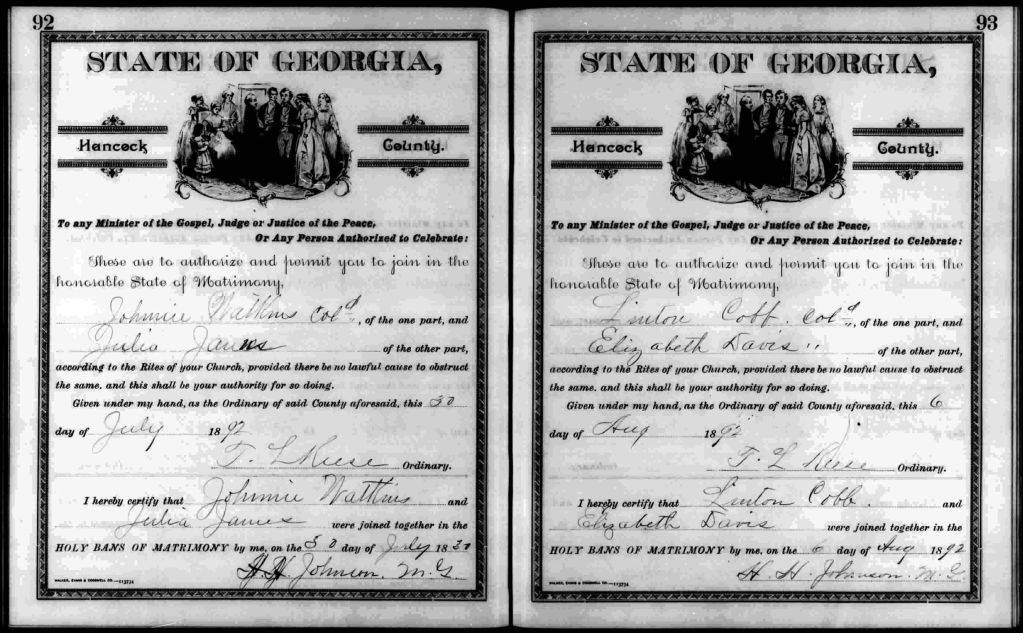 92
STATE OF GEORGIA,
Hancock County.
To any Minister of the Gospel, Judge or Justice of the Peace,
Or Any Person Authorized to Celebrate:
These are to authorize and permit you to join in the
honorable State of Matrimony,
Johnnie Watkins Cold, of the one part, and
Julia James of the other part,
according to the Rites of your Church, provided there be no lawful cause to obstruct
the same, and this shall be your authority for so doing.
Given under my hand, as the Ordinary of said County aforesaid, this 30
day of July 1892
T. L Reese Ordinary.
I hereby certify that Johnnie Watkins and
Julia James were joined together in the
HOLY BANS OF MATRIMONY by me, on the 30 day of July 1830
H H Johnson. M. G.
WALKER, EVANS & COGSWELL CO.—113734
93
STATE OF GEORGIA,
Hancock County.
To any Minister of the Gospel, Judge or Justice of the Peace,
Or Any Person Authorized to Celebrate:
These are to authorize and permit you to join in the
honorable State of Matrimony,
Linton Cobb. Cold, of the one part, and
Elizabeth Davis " of the other part,
according to the Rites of your Church, provided there be no lawful cause to obstruct
the same, and this shall be your authority for so doing.
Given under my hand, as the Ordinary of said County aforesaid, this 6
day of Aug 1892
T. L Reese Ordinary.
I hereby certify that Linton Cobb. and
Elizabeth Davis were joined together in the
HOLY BANS OF MATRIMONY by me, on the 6 day of Aug 1892
H. H. Johnson. M. G
WALKER, EVANS & COGSWELL CO.—113734